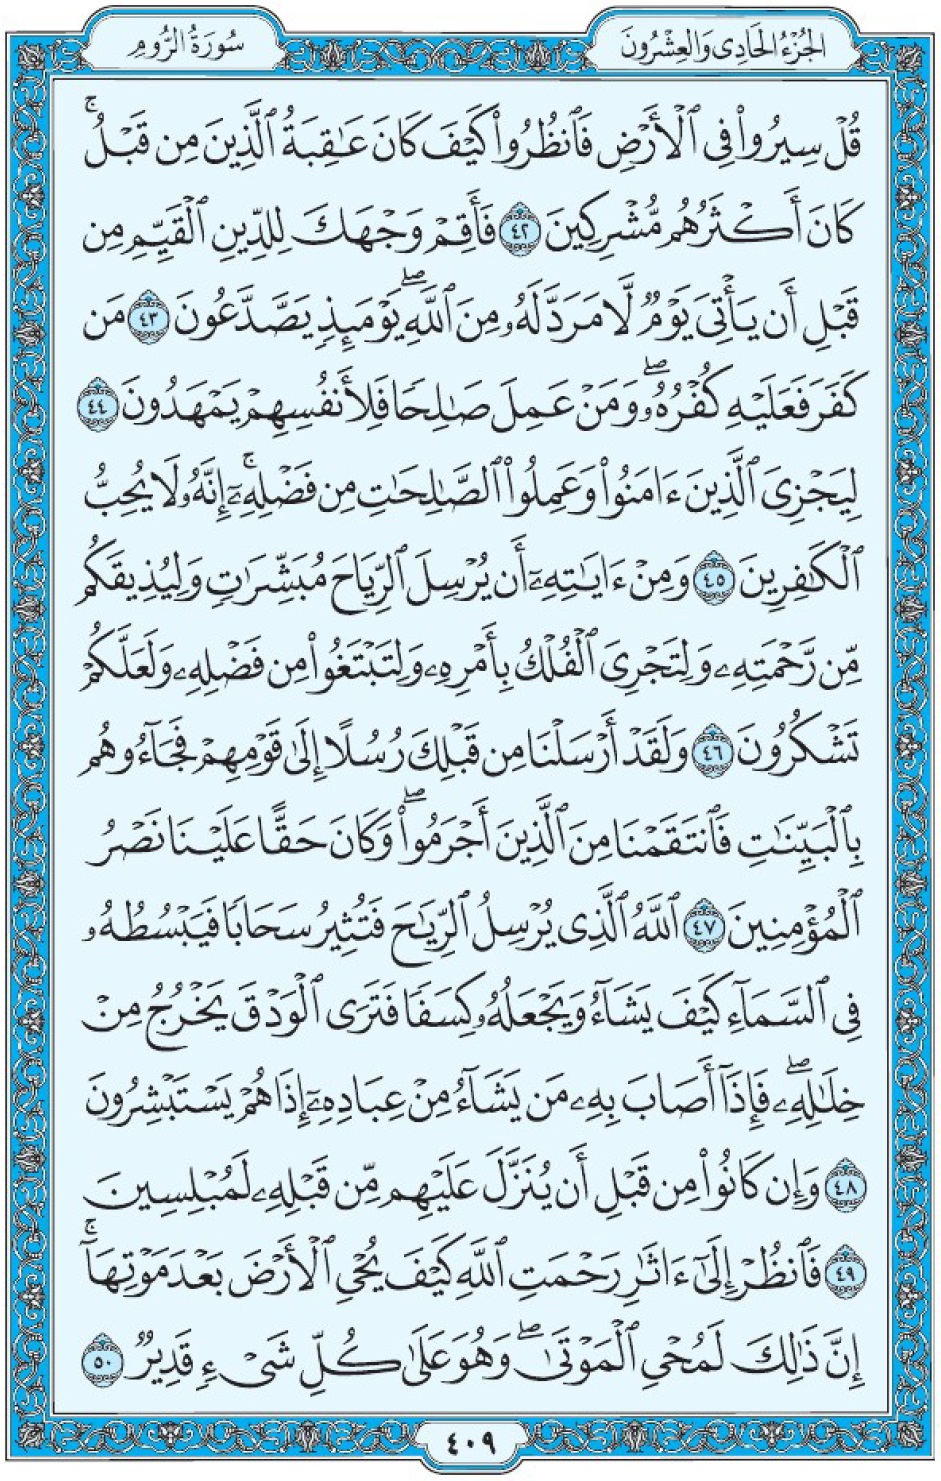 الجُزْءُ الحَادِي وَالعِشْرُونَ
سُورَةُ الرُّومِ
قُلْ سِيرُواْ فِي ٱلْأَرْضِ فَٱنظُرُواْ كَيْفَ كَانَ عَٰقِبَةُ ٱلَّذِينَ مِن قَبْلُۚ
كَانَ أَكْثَرُهُم مُّشْرِكِينَ ٤٢ فَأَقِمْ وَجْهَكَ لِلدِّينِ ٱلْقَيِّمِ مِن
قَبْلِ أَن يَأْتِيَ يَوْمٌ لَّا مَرَدَّ لَهُۥ مِنَ ٱللَّهِۖ يَوْمَئِذٍ يَصَّدَّعُونَ ٤٣ مَن
كَفَرَ فَعَلَيْهِ كُفْرُهُۥۖ وَمَنْ عَمِلَ صَٰلِحًا فَلِأَنفُسِهِمْ يَمْهَدُونَ ٤٤
لِيَجْزِيَ ٱلَّذِينَ ءَامَنُواْ وَعَمِلُواْ ٱلصَّٰلِحَٰتِ مِن فَضْلِهِۦٓۚ إِنَّهُۥ لَا يُحِبُّ
ٱلْكَٰفِرِينَ ٤٥ وَمِنْ ءَايَٰتِهِۦٓ أَن يُرْسِلَ ٱلرِّيَاحَ مُبَشِّرَٰتٍ وَلِيُذِيقَكُم
مِّن رَّحْمَتِهِۦ وَلِتَجْرِيَ ٱلْفُلْكُ بِأَمْرِهِۦ وَلِتَبْتَغُواْ مِن فَضْلِهِۦ وَلَعَلَّكُمْ
تَشْكُرُونَ ٤٦ وَلَقَدْ أَرْسَلْنَا مِن قَبْلِكَ رُسُلًا إِلَىٰ قَوْمِهِمْ فَجَآءُوهُم
بِٱلْبَيِّنَٰتِ فَٱنتَقَمْنَا مِنَ ٱلَّذِينَ أَجْرَمُواْۖ وَكَانَ حَقًّا عَلَيْنَا نَصْرُ
ٱلْمُؤْمِنِينَ ٤٧ ٱللَّهُ ٱلَّذِي يُرْسِلُ ٱلرِّيَٰحَ فَتُثِيرُ سَحَابًا فَيَبْسُطُهُۥ
فِي ٱلسَّمَآءِ كَيْفَ يَشَآءُ وَيَجْعَلُهُۥ كِسَفًا فَتَرَى ٱلْوَدْقَ يَخْرُجُ مِنْ
خِلَٰلِهِۦۖ فَإِذَآ أَصَابَ بِهِۦ مَن يَشَآءُ مِنْ عِبَادِهِۦٓ إِذَا هُمْ يَسْتَبْشِرُونَ
٤٨ وَإِن كَانُواْ مِن قَبْلِ أَن يُنَزَّلَ عَلَيْهِم مِّن قَبْلِهِۦ لَمُبْلِسِينَ
٤٩ فَٱنظُرْ إِلَىٰٓ ءَاثَٰرِ رَحْمَتِ ٱللَّهِ كَيْفَ يُحْيِ ٱلْأَرْضَ بَعْدَ مَوْتِهَآۚ
إِنَّ ذَٰلِكَ لَمُحْيِ ٱلْمَوْتَىٰۖ وَهُوَ عَلَىٰ كُلِّ شَيْءٍ قَدِيرٌ ٥٠
٤٠٩